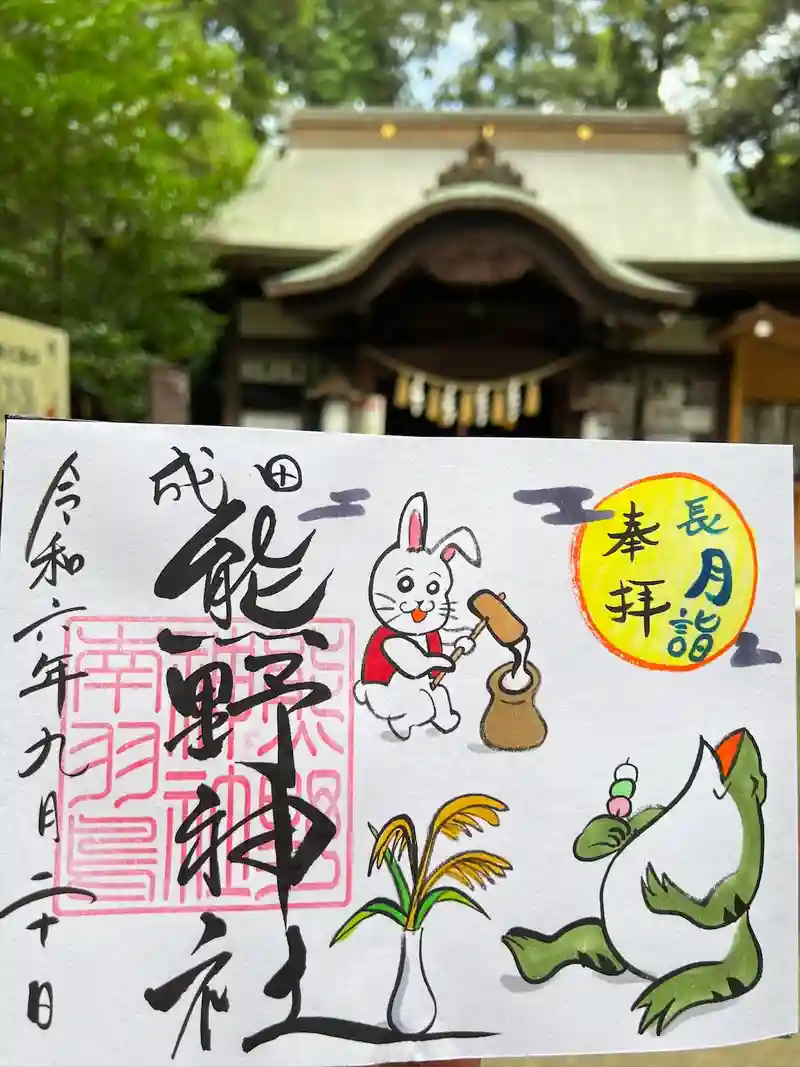 長月詣
奉拝
成田
熊野神社
熊野
神社
南羽鳥
令和六年九月二十日